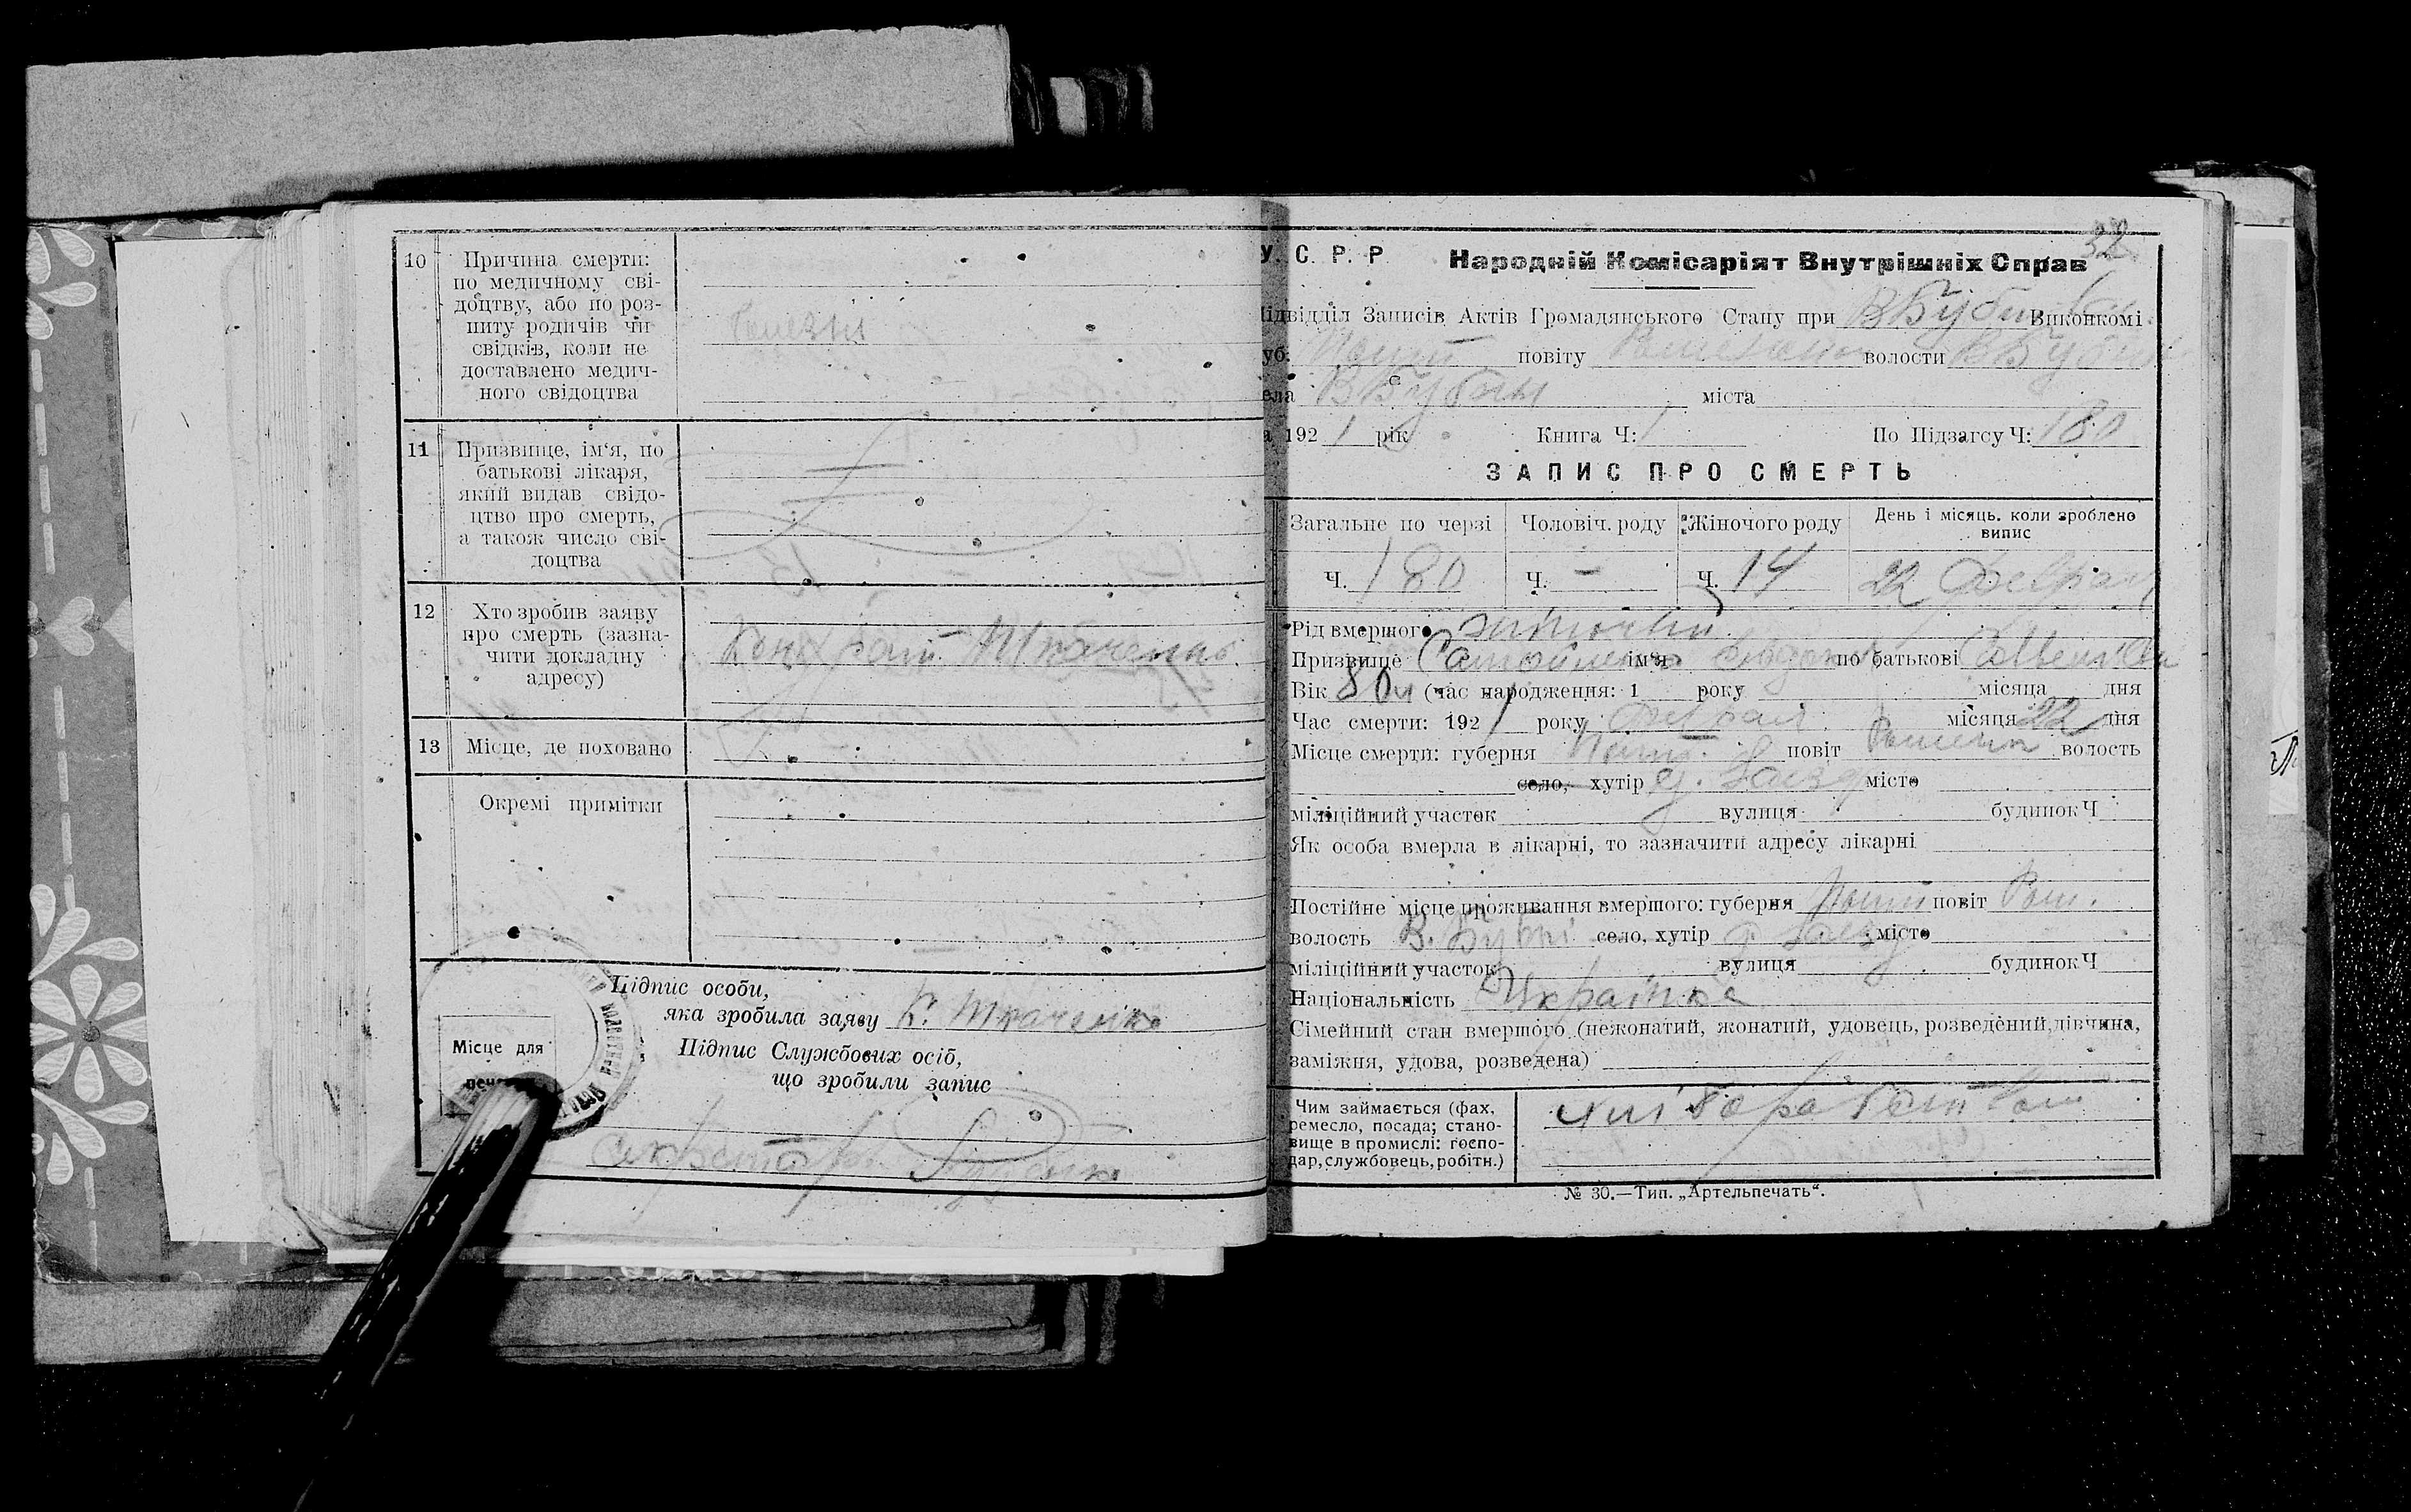 10 Причина смерти:
по медичному сві-
доцтву, або по роз-
питу родичів чи
свідків, коли не
доставлено медич-
ного свідоцтва
11 Призвище, ім‘я, по
батькові лікаря,
який видав свідо-
цтво про смерть,
а також число сві-
доцтва
12 Хто зробив заяву
про смерть (зазна-
чити докладну
адресу)
Ткаченко
13 Місце, де поховано
Окремі примітки
Підпис особи,
яка зробила заяву К. Ткаченко
Місце для
Підпис Службових осіб,
що зробили запис
32
У. С. Р. Р. Народній Комісаріят Внутрішніх Справ
Підвідділ Записів Актів Громадянського Стану при В Буб Виконкомі
губ: Полт повіту волости В Буб
села В Бубны міста
а 1921 рік Книга Ч: 1 По Підзагсу Ч: 180
ЗАПИС ПРО СМЕРТЬ
Загальне по черзі Чоловіч. роду Жіночого роду День і місяць. коли зроблено
випис
Ч. 180 Ч. – Ч. 14 22 Февраля
Рід вмершого
Призвище Самойленко ім‘я по батькові
Вік 80 (час народження: 1 року місяца дня
Час смерти: 1921 року Февраля місяця 22 дня
Місце смерти: губерня Полт. повіт волость
село, хутір місто
міліційний участок вулиця будинок Ч
Як особа вмерла в лікарні, то зазначити адресу лікарні
Постійне місце проживання вмершого: губерня Полт повіт Ром.
волость В. Бубні село, хутір місто
міліційний участок вулиця будинок Ч
Національність Українка
Сімейний стан вмершого (нежонатий, жонатий, удовець, розведений, дівчина,
заміжня, удова, розведена)
Чим займається (фах,
ремесло, посада; стано-
вище в промислі: госпо-
дар, службовець, робітн.)
№ 30.—Тип. „Артельпечать“.